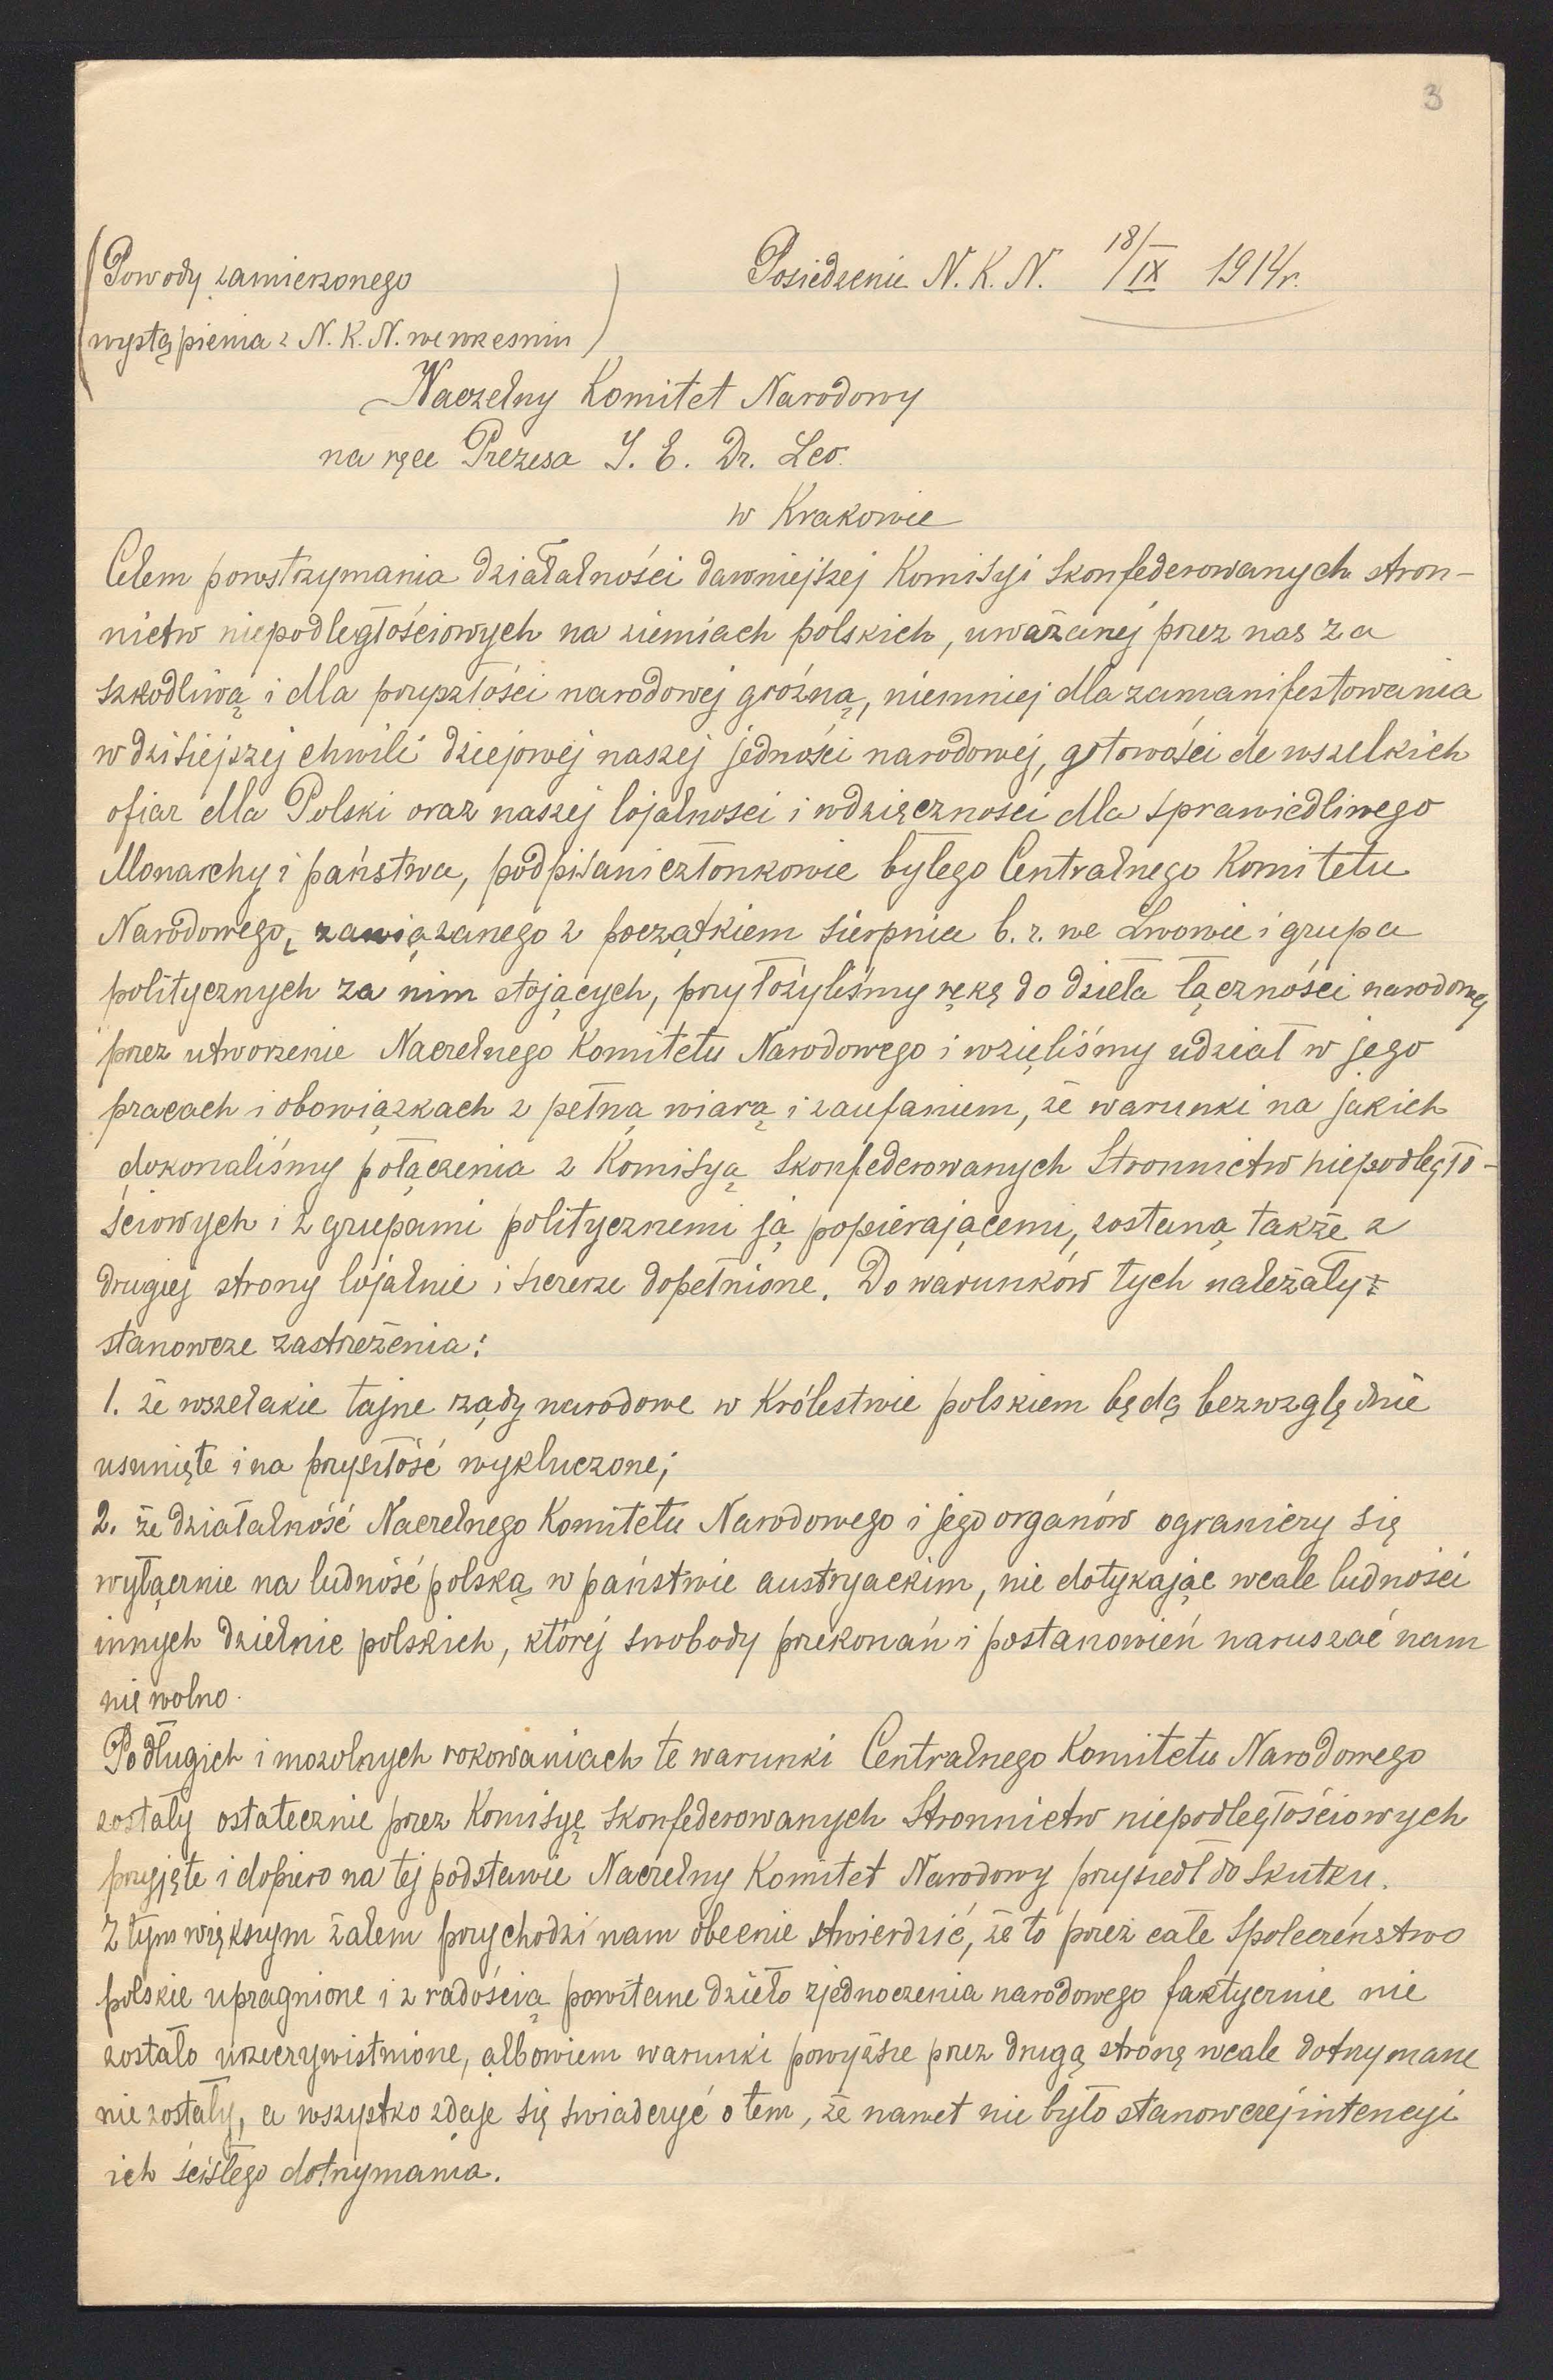 3
(Powody zamierzonego
wystąpienia z N. K. N. we wrześniu)
Posiedzenie N. K. N. 18/IX 1914 r.
Naczelny Komitet Narodowy
na ręce Prezesa J. E. Dr. Leo.
w Krakowie
Celem powstrzymania działalności dawniejszej Komisyi skonfederowanych stron-
nictw niepodległościowych na ziemiach polskich, uważanej przez nas za
szkodliwą i dla przyszłości narodowej groźną, niemniej dla zamanifestowania
w dzisiejszej chwili dziejowej naszej jedności narodowej, gotowości do wszelkich
ofiar dla Polski oraz naszej lojalności i wdzięczności dla sprawiedliwego
Monarchy i państwa, podpisani członkowie byłego Centralnego Komitetu
Narodowego, zawiązanego z początkiem sierpnia b. r. we Lwowie i grupa
politycznych za nim stojących, przyłożyliśmy rękę do dzieła łączności narodowej
przez utworzenie Naczelnego Komitetu Narodowego i wzięliśmy udział w jego
pracach i obowiązkach z pełną wiarą i zaufaniem, że warunki na jakich
dokonaliśmy połączenia z Komisyą Skonfederowanych Stronnictw niepodległo-
ściowych i z grupami politycznemi ją popierającemi, zostaną także z
drugiej strony lojalnie i szczerze dopełnione. Do warunków tych należały
stanowcze zastrzeżenia:
1. że wszelakie tajne rządy narodowe w Królestwie polskiem będą bezwzględnie
usunięte i na przyszłość wykluczone;
2. że działalność Naczelnego Komitetu Narodowego i jego organów ograniczy się
wyłącznie na ludność polską w państwie austryackim, nie dotykając wcale ludności
innych dzielnic polskich, której swobody przekonań i postanowień naruszać nam
nie wolno.
Po długich i mozolnych rokowaniach te warunki Centralnego Komitetu Narodowego
zostały ostatecznie przez Komisyę Skonfederowanych Stronnictw niepodległościowych
przyjęte i dopiero na tej podstawie Naczelny Komitet Narodowy przyszedł do skutku.
Z tym większym żalem przychodzi nam obecnie stwierdzić, że to przez całe społeczeństwo
polskie upragnione i z radością powitane dzieło zjednoczenia narodowego faktycznie nie
zostało urzeczywistnione, albowiem warunki powyższe przez drugą stronę wcale dotrzymane
nie zostały, a wszystko zdaje się świadczyć o tem, że nawet nie było stanowczej intencyi
ich ścisłego dotrzymania.